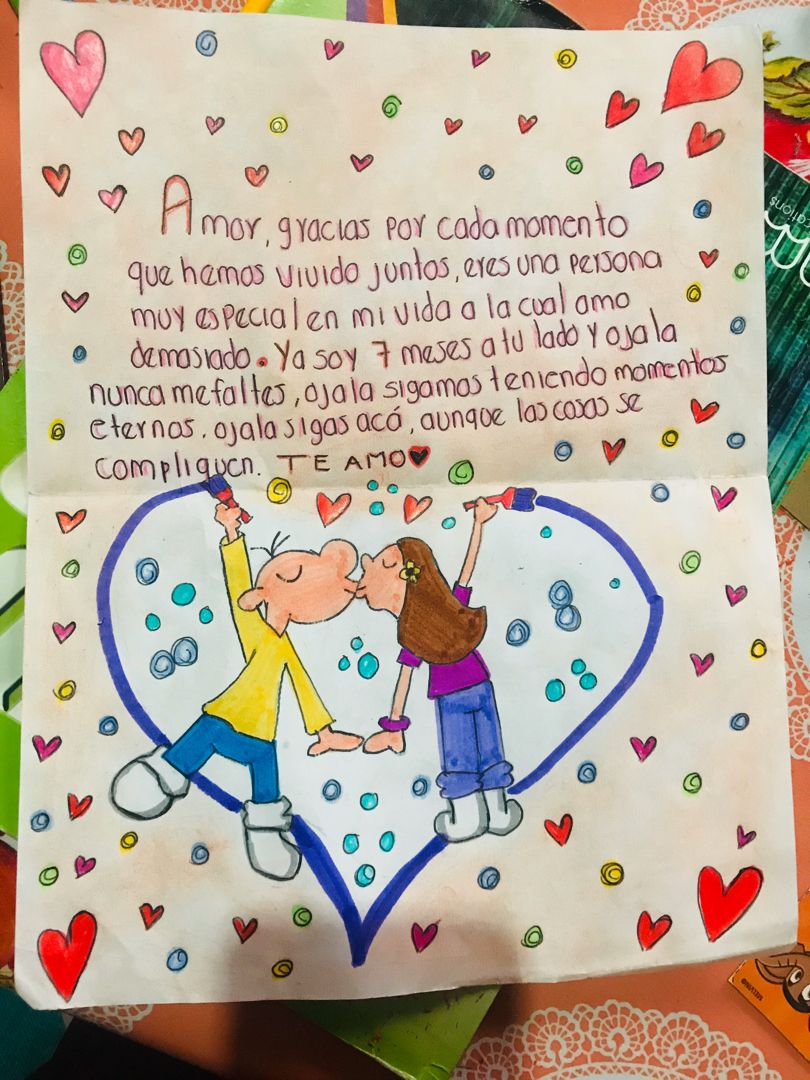 Amor, gracias por cada momento
que hemos vivido juntos, eres una persona
muy especial en mi vida a la cual amo
demasiado. Ya soy 7 meses a tu lado y ojala
nunca me faltes, ojala sigamos teniendo momentos
eternos, ojala sigas acá, aunque las cosas se
compliquen. TE AMO